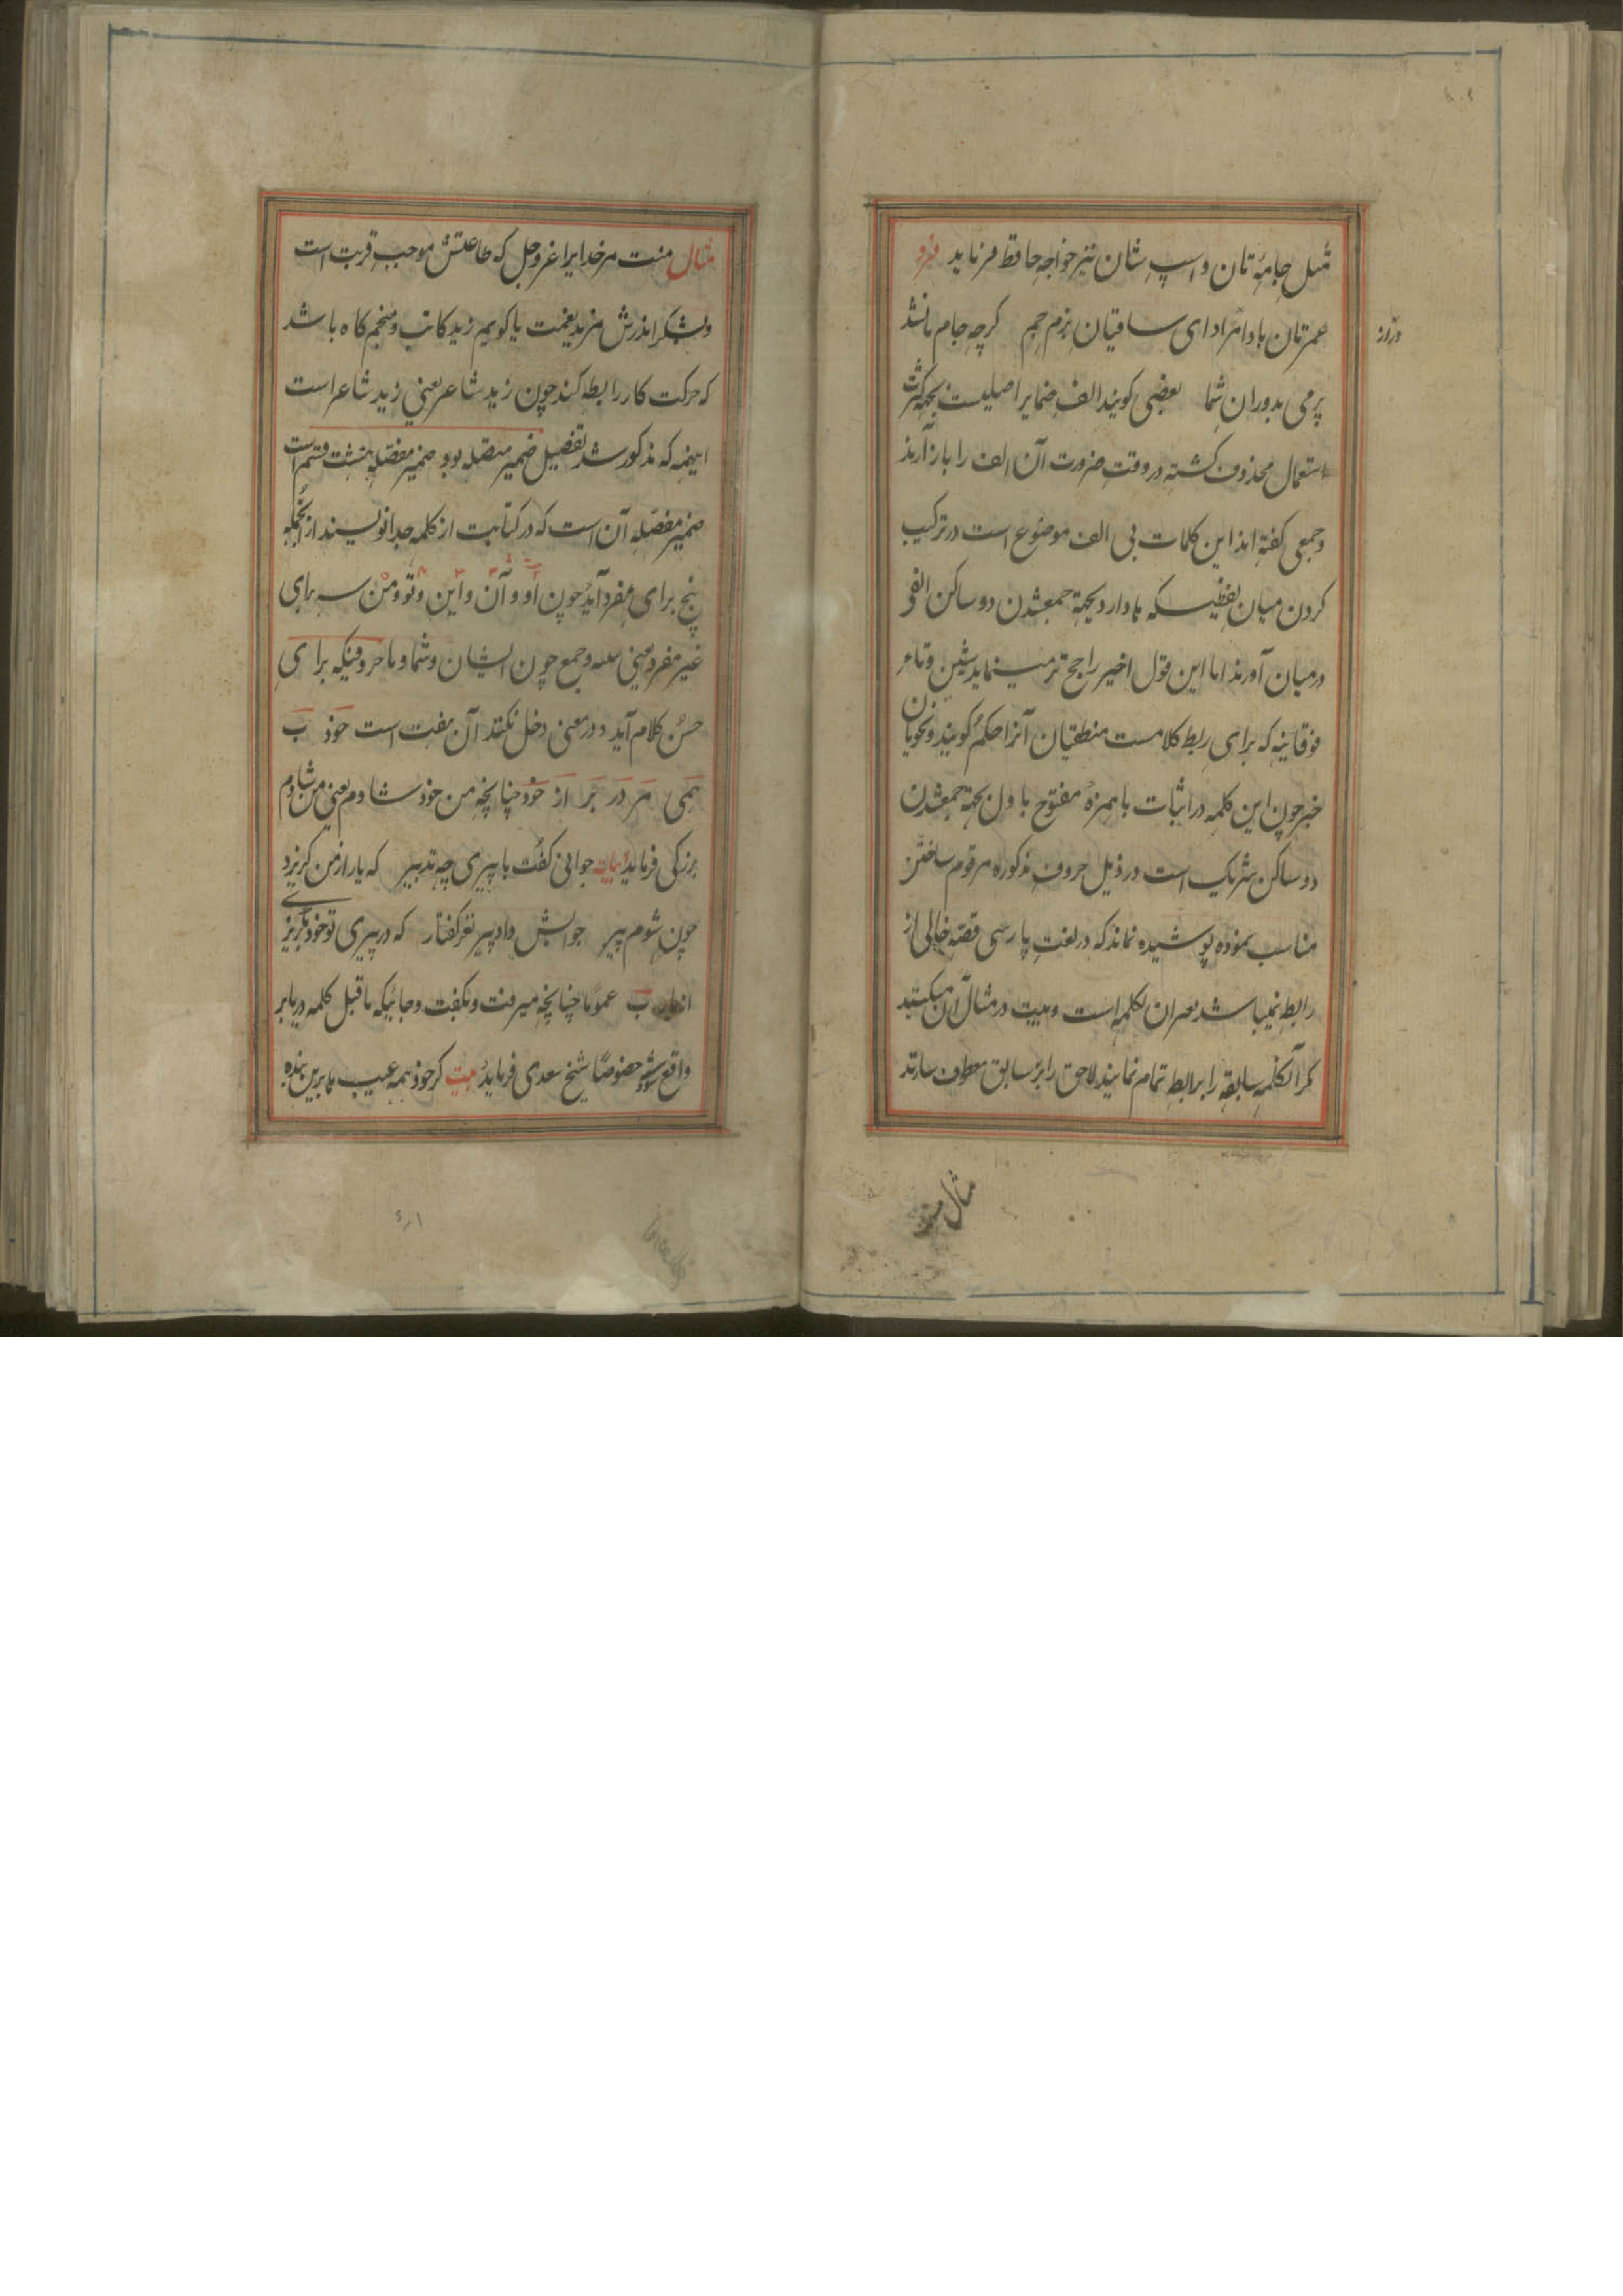 مثل جامۂ تان و اسپ شان نیز خواجه حافظ فرماید فرد
عمر تان باد امراد ای ساقیان بزم جم کرچه جام ما نشد
دراز
پر می بدوران شما بعضی کویند الف ضمایر اصلیست بجهة کثرت
استعمال محذوف کشته در وقت ضرورت آن الف را باز آرند
و جمعی کفته اند این کلمات بی الف موضوع است در ترکیب
کردن میان لفظیکه ها دارد بجهة جمع شدن دو ساکن الف
در میان آورند اما این قول اخیر راجح تر مینماید شین و تاء
فوقانیه که برای ربط کلامست منطقیان آنرا حکم کویند و نحویان
خبر چون این کلمه در اثبات با همزۂ مفتوح باول بجهة جمع شدن
دو ساکن شریک است در ذیل حروف مذکوره مرقوم ساختن
مناسب نموده پوشیده نماند که در لغت پارسی قصّه خالی از
رابطه نمیباشد بعد ان کلمه است و بیت در مثال آن میکنند
مکر آنکلمه سابقه را برابطه تمام نمایند لاحق را بر سابق معطوف سازند
مثال
مثال منت مر خدایرا عز و جل که طاعتش موجب قربت است
و بشکر اندرش مزید نعمت یا کویم زید کاتب و منجم کاه باشد
که حرکت کار رابطه کند چون زید شاعر یعنی زید شاعر است
اینهمه که مذکور شد تفصیل ضمیر متصله بود ضمیر منفصله هشت قسم است
ضمیر منفصله آن است که در کتابت از کلمه جدا نویسند از انجمله
پنج برای مفرد آید چون او و آن و این و تو و من سه برای
غیر مفرد یعنی تثنیه و جمع چون ایشان و شما و ما حروفیکه برای
حسن کلام آید و در معنی دخل نکند آن هفت است خود ب
همی مر در بر از خود چنانچه من خود شادم یعنی من شادم
بزرکی فرماید ابیات جوانی کفت با پیری چه تدبیر که یار از من کریزد
چون شوم پیر جوابش داد پیر نغز کفتار که در پیری تو خود بکریزی
از یار ب عموما چنانچه میرفت و بکفت و جائیکه ماقبل کلمه در یا بر
واقع شود خصوصا شیخ سعدی فرماید بیت کر خود همه عیب ها بدین بنده